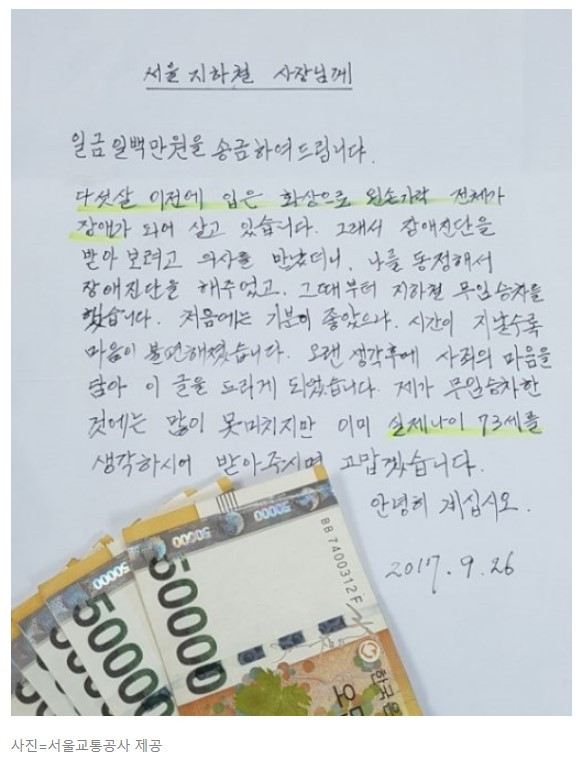 서울 지하철 사장님께
일금 일백만원을 송금하여드립니다.
다섯살 이전에 입은 화상으로 왼손가락 전체가
장애가 되어 살고 있습니다. 그래서 장애진단을
받아 보려고 의사를 만났더니, 나를 동정해서
장애진단을 해주었고. 그때부터 지하철 무임승차를
했습니다. 처음에는 기분이 좋았으나. 시간이 지날수록
마음이 불편해졌습니다. 오랜 생각후에 사죄의 마음을
담아 이 글을 드리게 되었습니다. 제가 무임승차한
것에는 많이 못미치지만 이미 실제나이 73세를
생각하시어 받아주시면 고맙겠습니다.
안녕히 계십시오.
2017.9.26
50000
50000
BB7400312F
50000
50000
50000
한국은
오만
사진=서울교통공사 제공